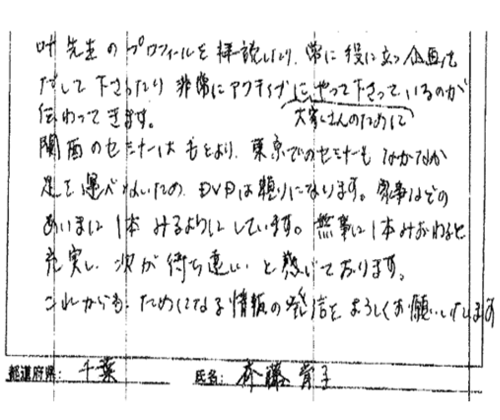 叶先生のプロフィールを拝読したり、常に役に立つ企画を
だして下さったり非常にアクティブにやって下さっているのが
大家さんのために
伝わってきます。
関西のセミナーはもとより、東京でのセミナーもなかなか
足を運べないため、DVDは頼りになります。家事などの
あいまに1本みるようにしています。無事に1本みおわると
充実し、次が待ち遠しいと感じております。
これからも、ためになる情報の発信をよろしくお願いいたします
都道府県： 千葉 氏名： 斉藤 子